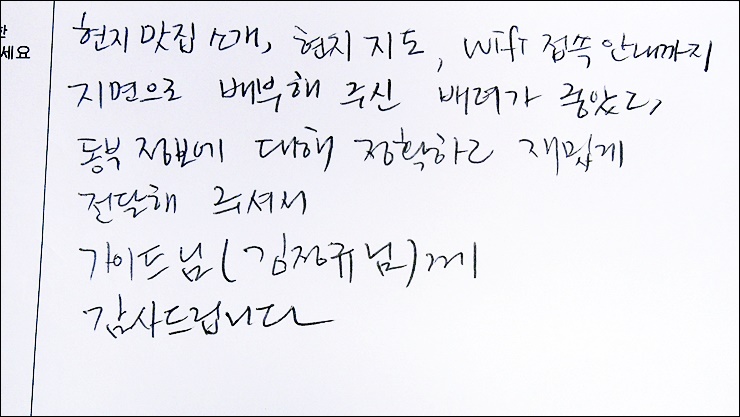 한
세요
현지 맛집 소개, 현지 지도, Wifi 접속 안내까지
지면으로 배부해 주신 배려가 좋았고,
동부 정보에 대해 정확하고 재밌게
전달해 주셔서
가이드님(김정규님)께
감사드립니다